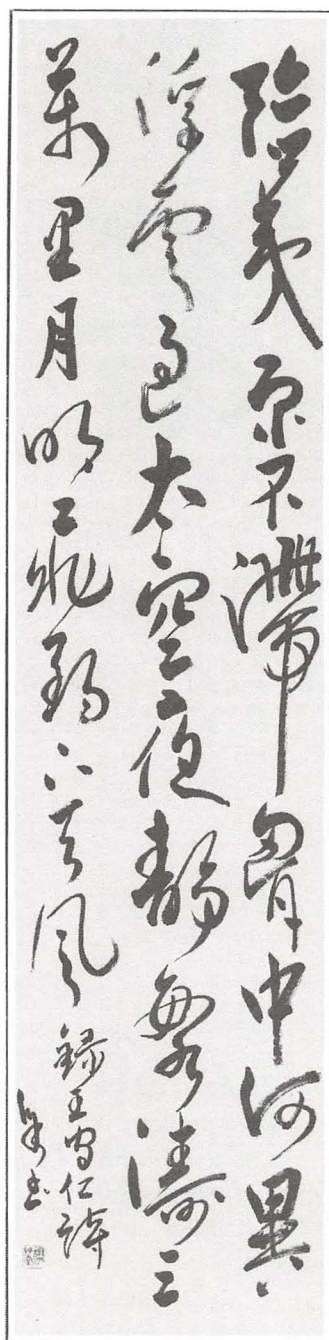 險夷原不滯胷中何異
浮雲過太空夜靜海濤三
萬里月明飛錫下天風
錄王守仁詩
書